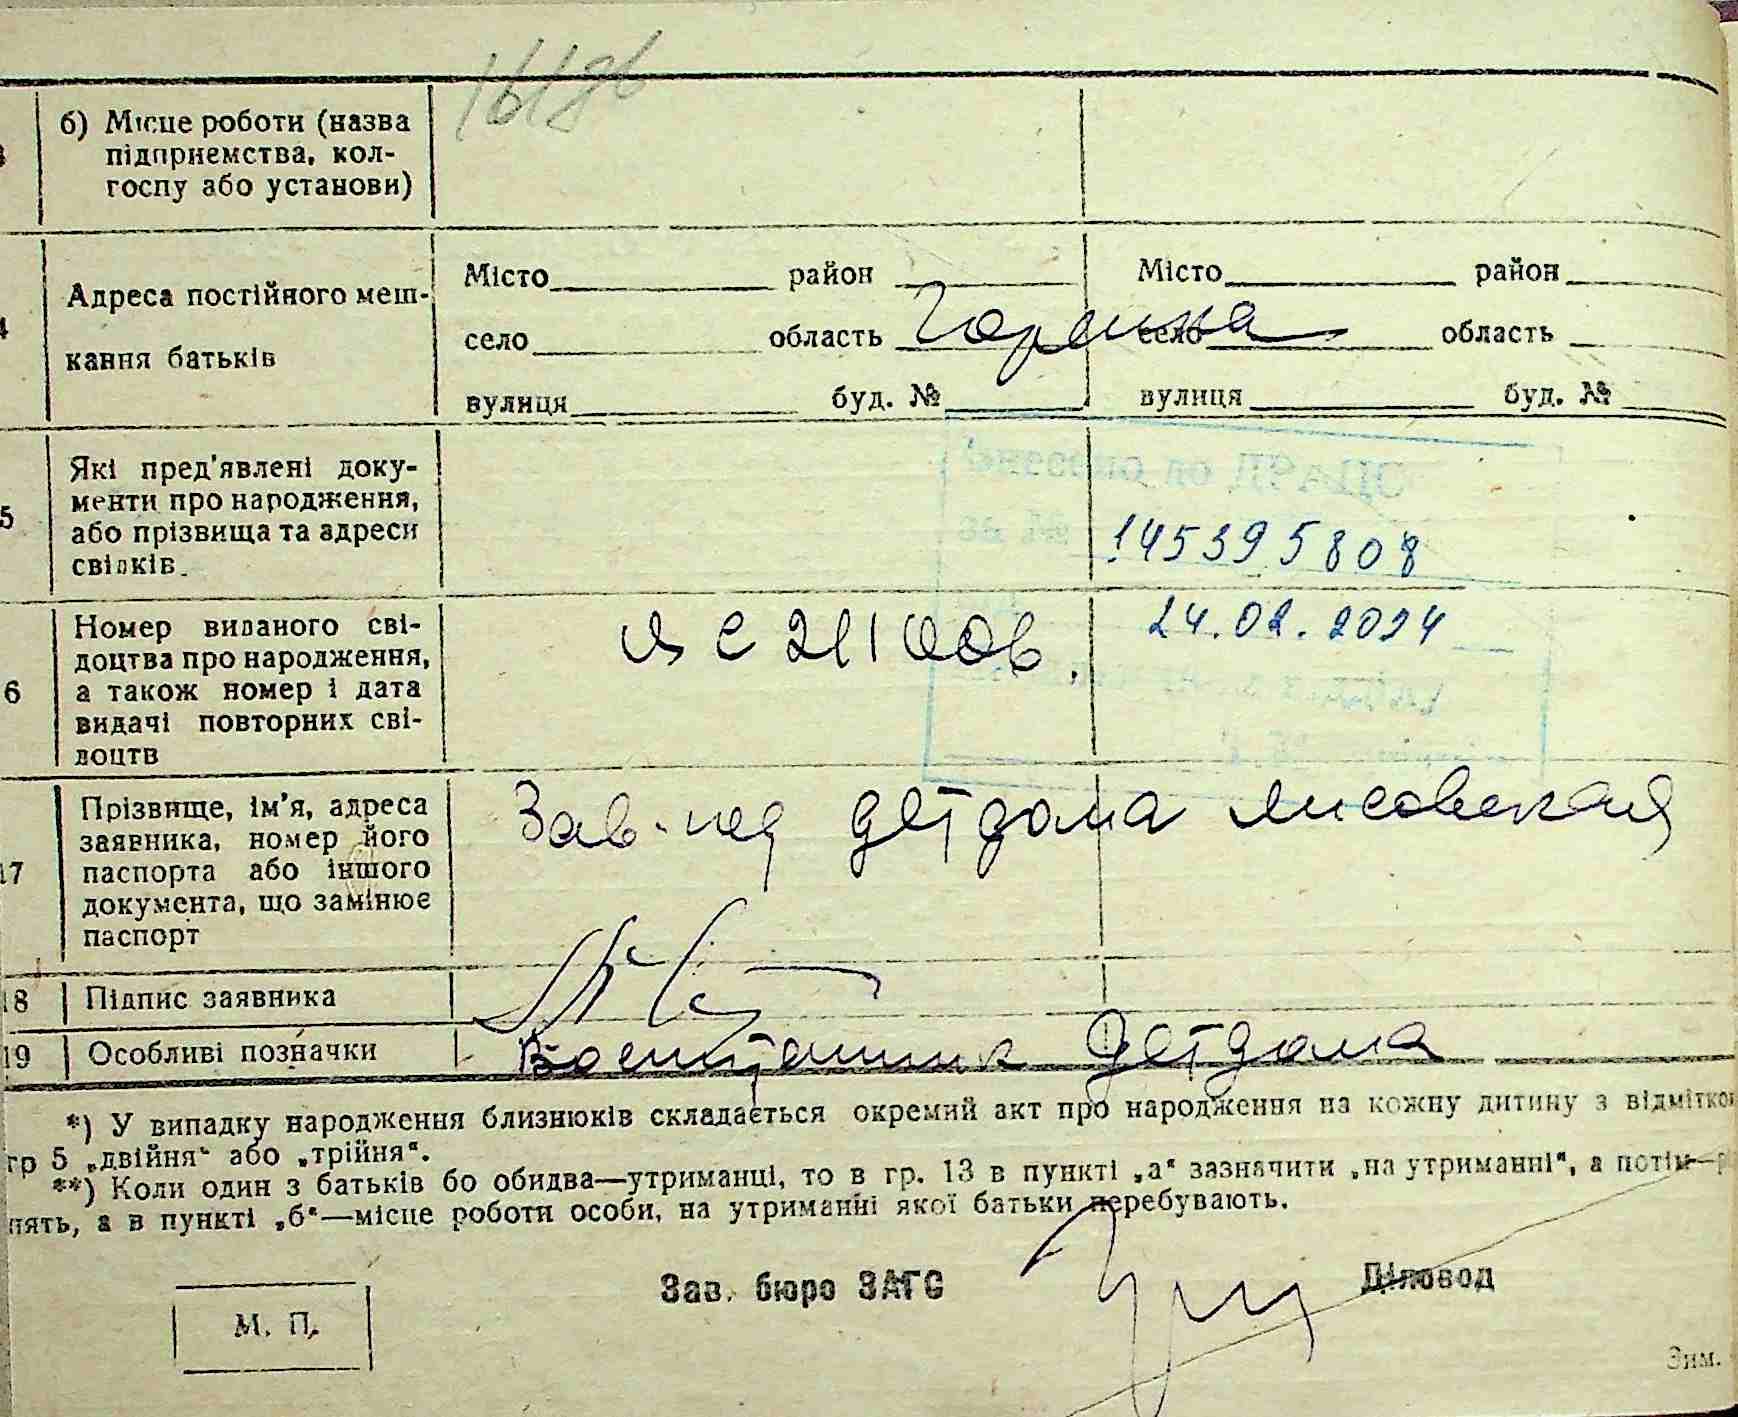 б) Місце роботи (назва
підприемства, кол-
госпу або установи)
Адреса постійного меш-
кання батьків
Місто район Місто район
село область село область
вулиця буд. № вулиця буд. №
Які пред'явлені доку-
менти про народження,
або прізвища та адреси
свідків.
Внесено до ДРАЦС
за № 145395808
24.02.2024
6
Номер виданого сві-
доцтва про народження,
а також номер і дата
видачі повторних сві-
доцтв
17
Прізвище, ім'я, адреса
заявника, номер його
паспорта або іншого
документа, що замінює
паспорт
Зав. пед детдома Лисовская
18 Підпис заявника
19 Особливі позначки
Воспитанник детдома
*) У випадку народження близнюків складається окремий акт про народження на кожну дитину з відмітко
гр 5 „двійня“ або „трійня“.
**) Коли один з батьків бо обидва—утриманці, то в гр. 13 в пункті „а“ зазначити „на утриманні“, а потім—
пять, а в пункті „б“—місце роботи особи, на утриманні якої батьки перебувають.
Зав. бюро ЗАГС Діловод
М. П.
Зим.